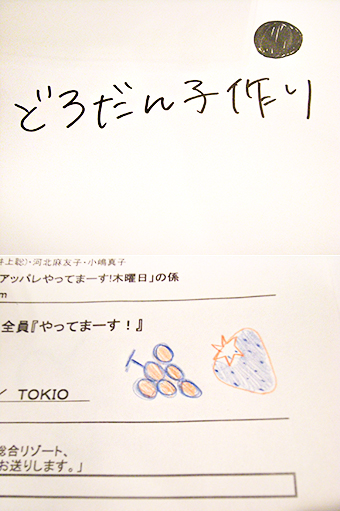 どろだん子作り
井上聡)・河北麻友子・小嶋真子
アッパレやってまーす!木曜日」の係
m
全員『やってまーす！』
／ TOKIO
総合リゾート、
お送りします。」